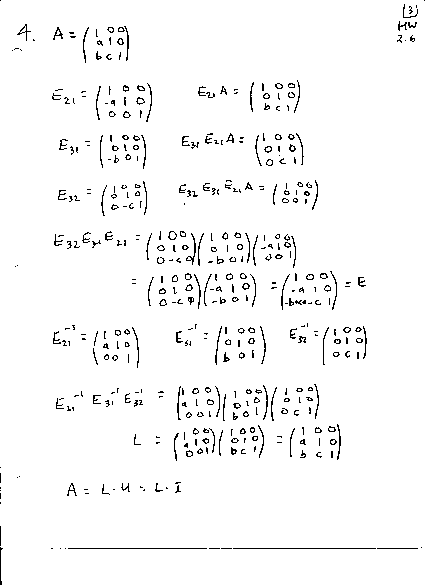 [3]
HW
2.6
4. A = (1 0 0; a 1 0; b c 1)
E21 = (1 0 0; -a 1 0; 0 0 1) E21 A = (1 0 0; 0 1 0; b c 1)
E31 = (1 0 0; 0 1 0; -b 0 1) E31 E21 A = (1 0 0; 0 1 0; 0 c 1)
E32 = (1 0 0; 0 1 0; 0 -c 1) E32 E31 E21 A = (1 0 0; 0 1 0; 0 0 1)
E32 E31 E21 = (1 0 0; 0 1 0; 0 -c 0)(1 0 0; 0 1 0; -b 0 1)(1 0 0; -a 1 0; 0 0 1)
= (1 0 0; 0 1 0; 0 -c 1)(1 0 0; -a 1 0; -b 0 1) = (1 0 0; -a 1 0; -b+ac -c 1) = E
E21^-1 = (1 0 0; a 1 0; 0 0 1) E31^-1 = (1 0 0; 0 1 0; b 0 1) E32^-1 = (1 0 0; 0 1 0; 0 c 1)
E21^-1 E31^-1 E32^-1 = (1 0 0; a 1 0; 0 0 1)(1 0 0; 0 1 0; b 0 1)(1 0 0; 0 1 0; 0 c 1)
L = (1 0 0; a 1 0; 0 0 1)(1 0 0; 0 1 0; b c 1) = (1 0 0; a 1 0; b c 1)
A = L·U = L·I